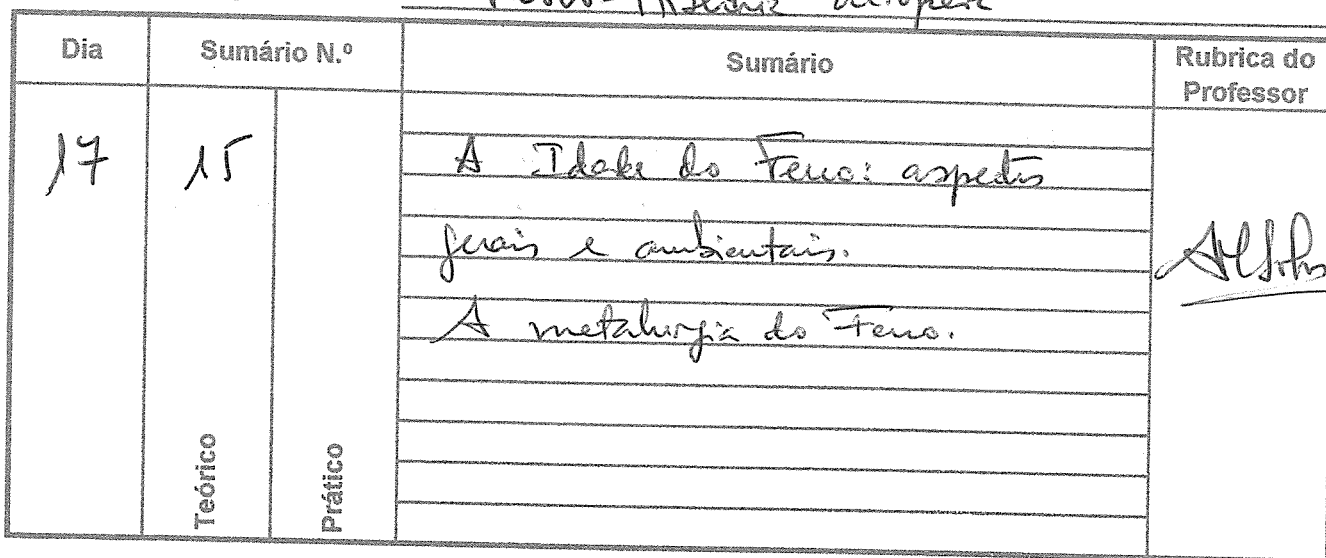 Dia
Sumário N.º
Sumário
Rubrica do
Professor
17
15
A Idade do Ferro: aspectos
gerais e ambientais.
A metalurgia do Ferro.
Teórico
Prático